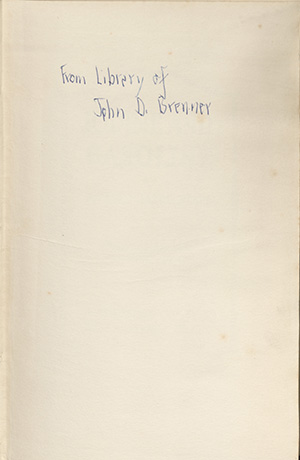 From Library of
John D. Brenner